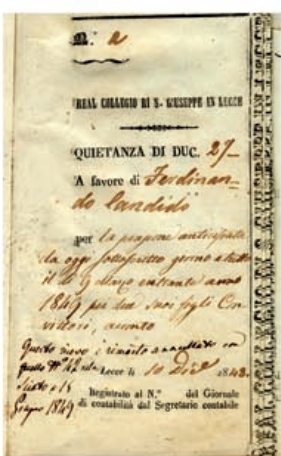 N.° 2
REAL COLLEGIO DI S. GIUSEPPE IN LECCE
QUIETANZA DI DUC. 27-
A favore di Ferdinan-
do Candido
per la pensione anticipata
da oggi sottoscritto giorno a tutto
il dì 9 Marzo entrante anno
1849 per due suoi figli Con
vittori,
Questo rimane annullato con
quello N° 42
Lecce li 10 Dic 1848.
Giugno 1849
Registrato al N.° del Giornale
di contabilità dal Segretario contabile